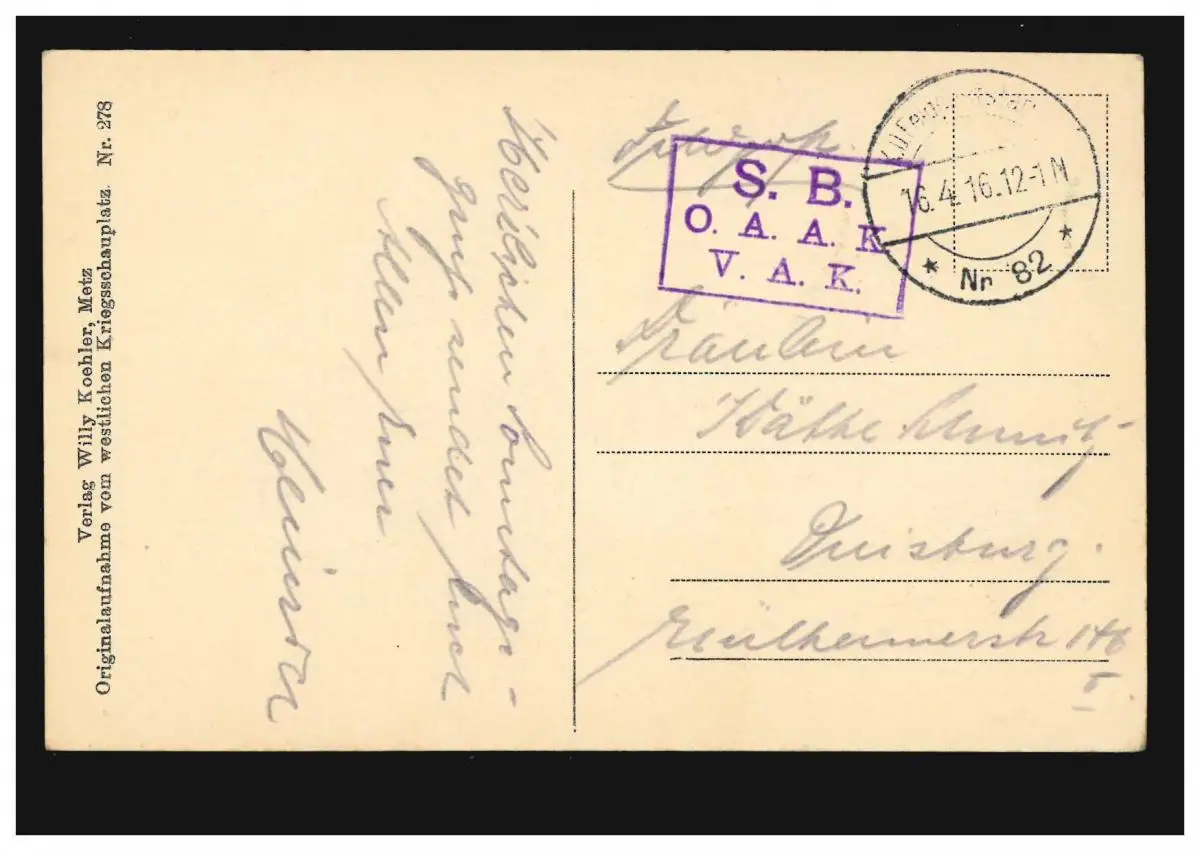 Verlag Willy Koehler, Metz
Originalaufnahme vom westlichen Kriegsschauplatz. Nr. 278
Herzlichen Sonntags-
gruß sendet Euch
Allen Euer
Feldp.
S. B.
O. A. A. K.
V. A. K.
16.4.16.12-1N
* Nr 82 *
Fräulein
Käthe
Duisburg.
Mülheimerstr 146
I